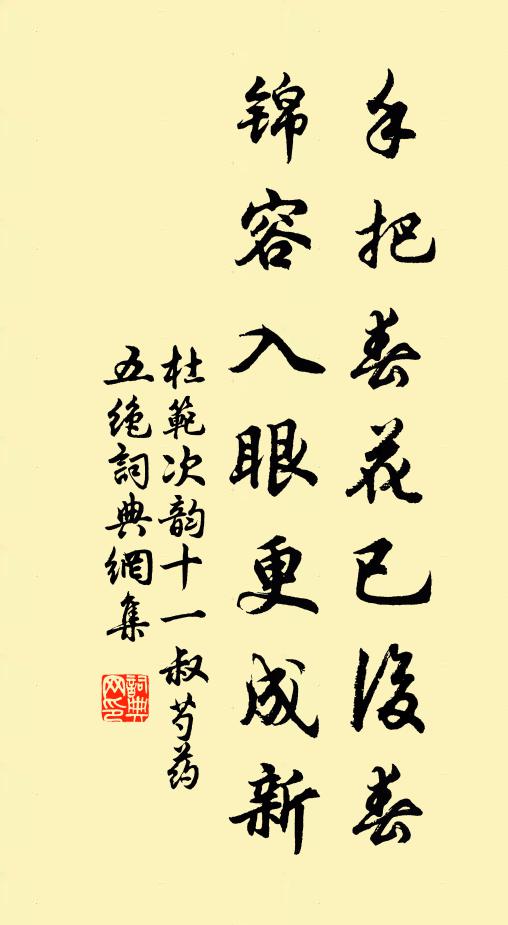 手把春花已後春
锦容入眼更成新
杜範次韵十一叔芍药
五绝詞典網集
詞典网印